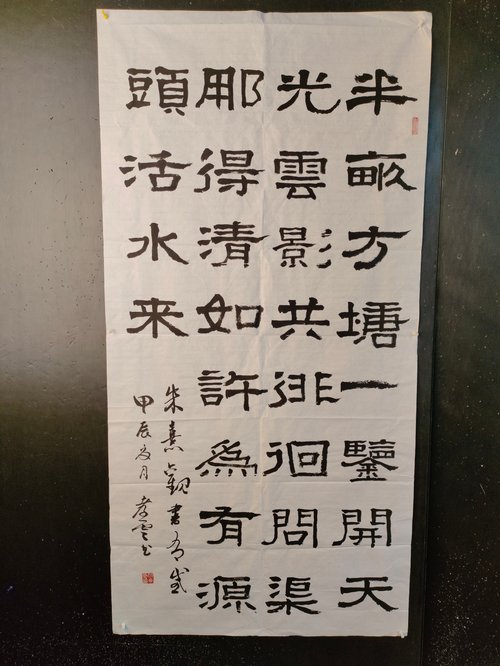 半畝方塘一鑒開天
光雲影共徘徊問渠
那得清如許為有源
頭活水来
朱熹觀書有感
甲辰夏月